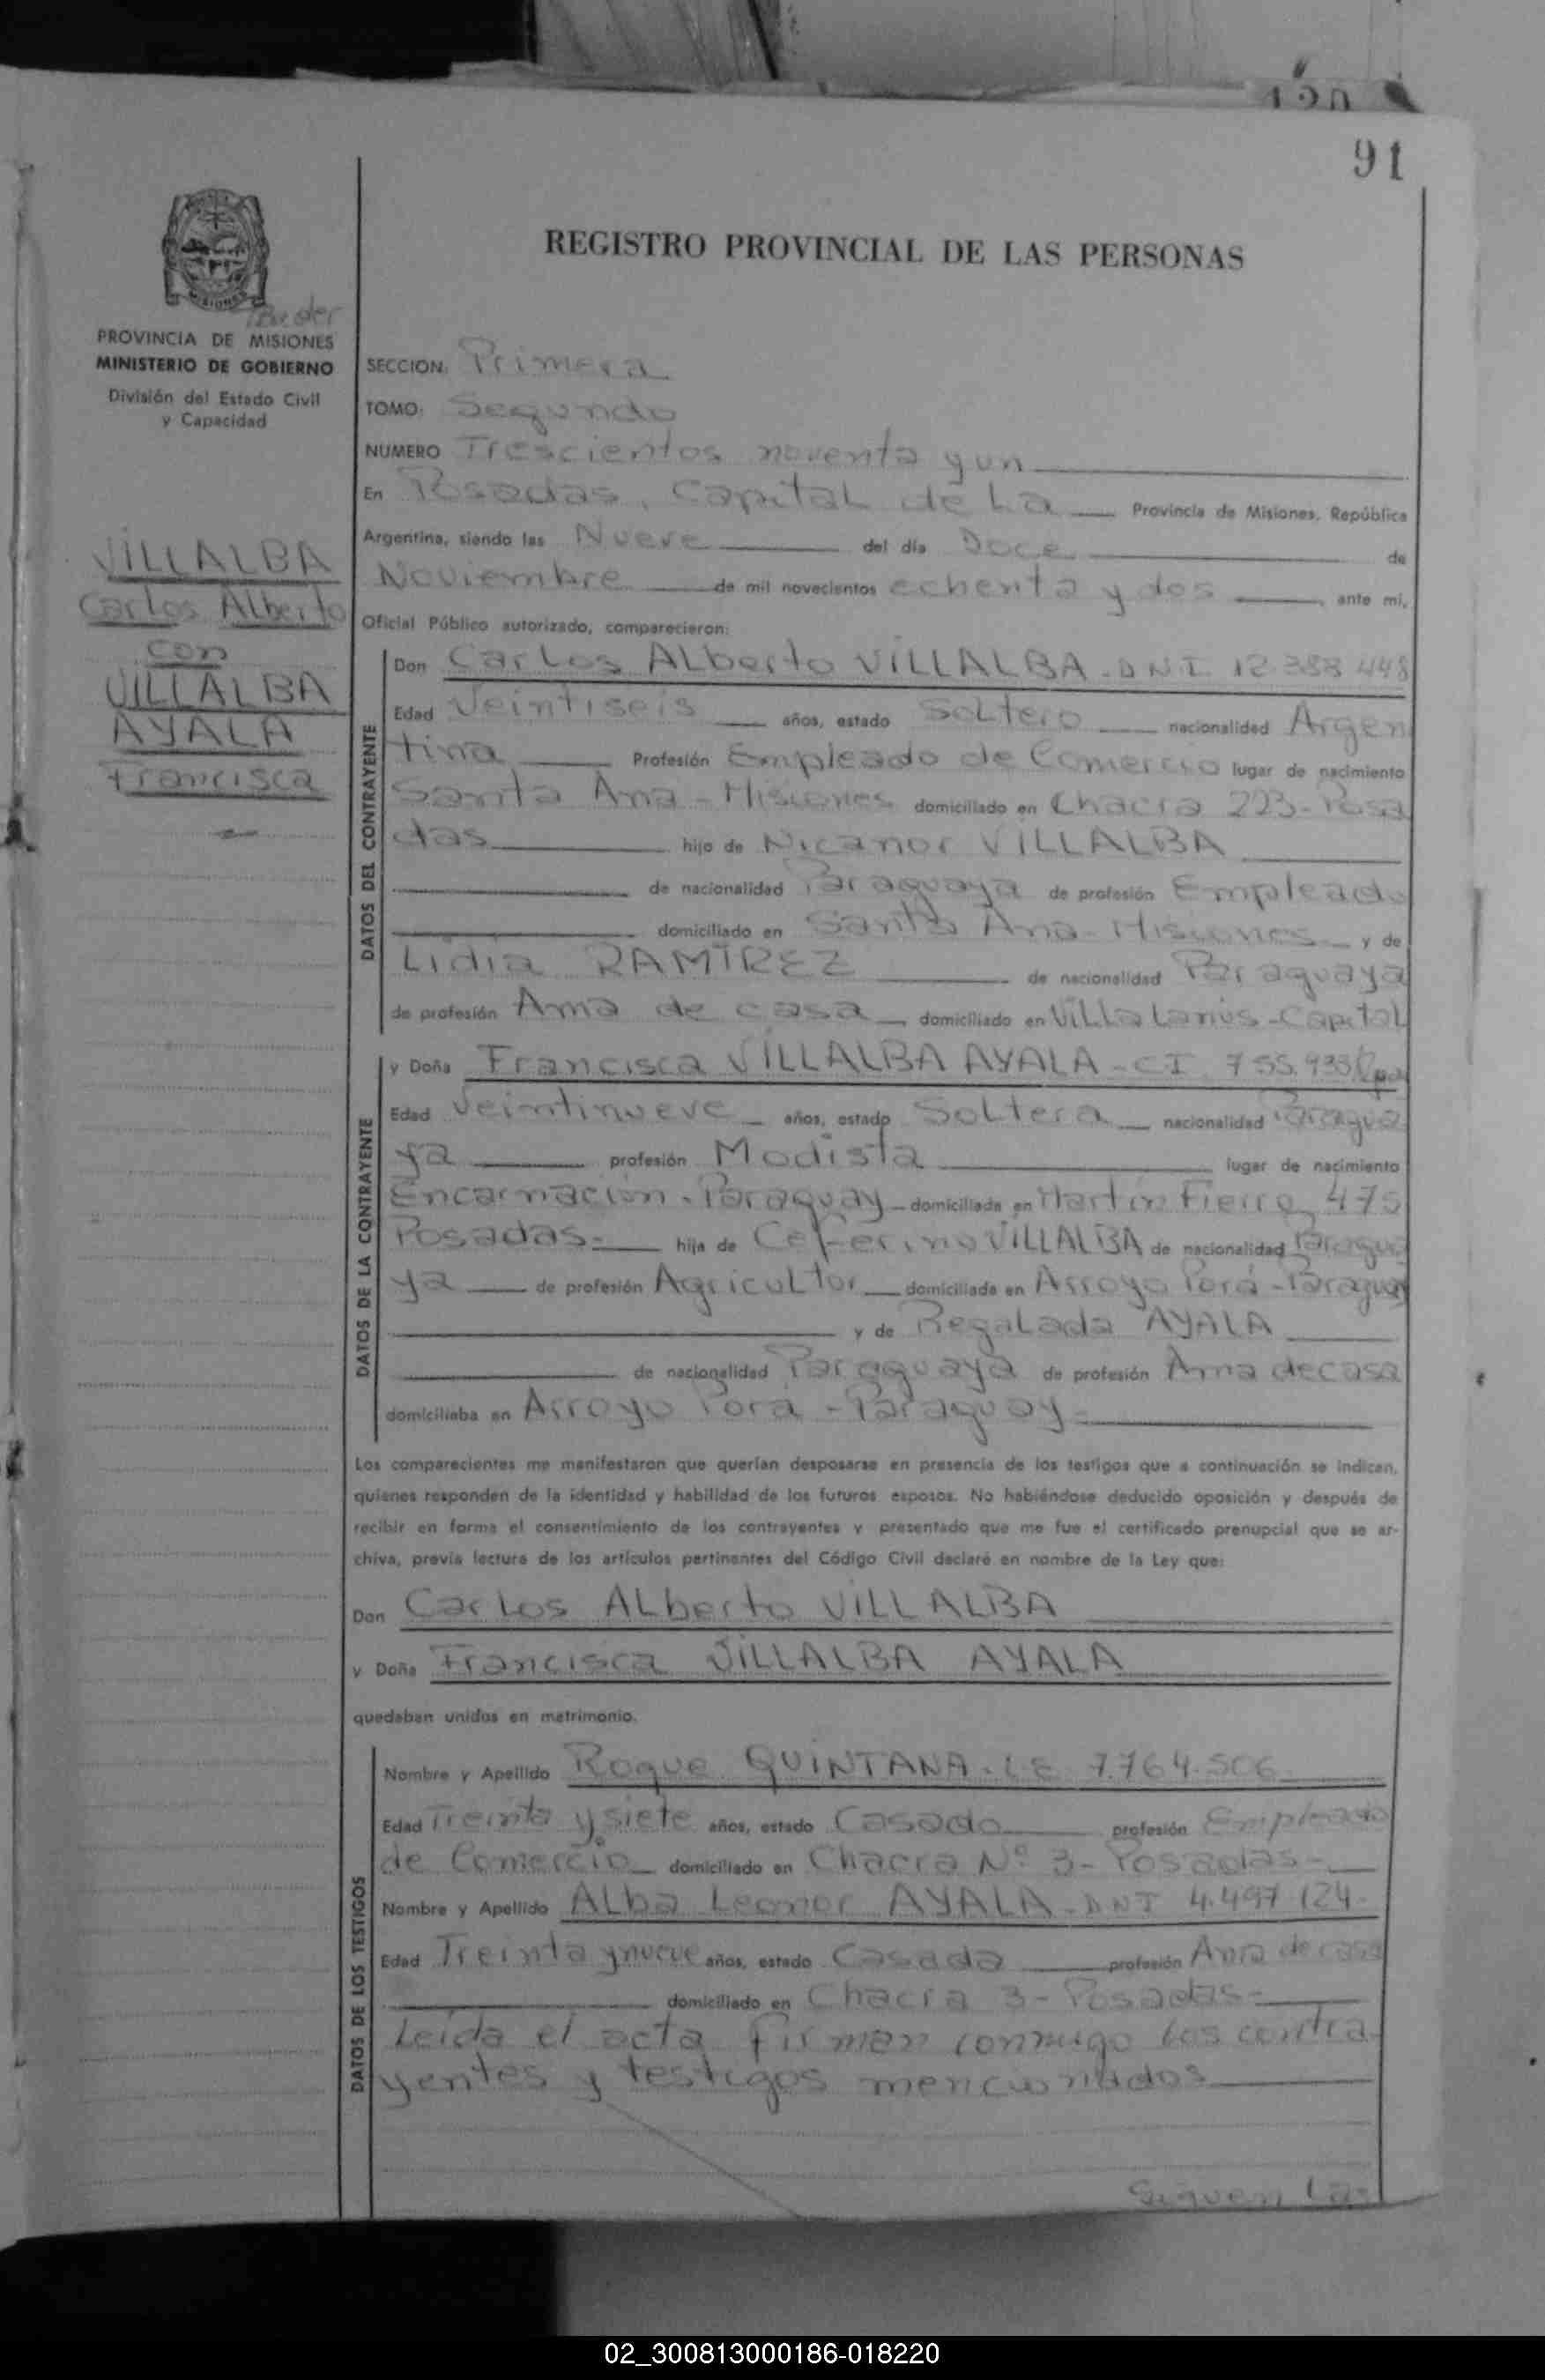 91
REGISTRO PROVINCIAL DE LAS PERSONAS
MISIONES
PROVINCIA DE MISIONES
MINISTERIO DE GOBIERNO
División del Estado Civil
y Capacidad
VILLALBA
Carlos Alberto
con
VILLALBA
AYALA
Francisca
SECCION: Primera
TOMO: Segundo
NUMERO Trescientos noventa y un
En Posadas, Capital de La Provincia de Misiones, República
Argentina, siendo las Nueve del día Doce de
Noviembre de mil novecientos ochenta y dos ante mi,
Oficial Público autorizado, comparecieron:
DATOS DEL CONTRAYENTE
Don Carlos ALberto VILLALBA - DNI 12.388.448
Edad Veintiseis años, estado Soltero nacionalidad Argen
tina Profesión Empleado de Comercio lugar de nacimiento
Santa Ana - Misiones domiciliado en Chacra 223 - Posa
das hijo de Nicanor VILLALBA
de nacionalidad Paraguaya de profesión Empleado
domiciliado en Santa Ana - Misiones y de
Lidia RAMIREZ de nacionalidad Paraguaya
de profesión Ama de casa domiciliado en Villa Lanús - Capital
DATOS DE LA CONTRAYENTE
y Doña Francisca VILLALBA AYALA - CI 755.933
Edad Veintinueve años, estado Soltera nacionalidad Paragua
ya profesión Modista lugar de nacimiento
Encarnación - Paraguay - domiciliada en Martín Fierro 475
Posadas - hija de Ceferino VILLALBA de nacionalidad Paragua
ya de profesión Agricultor domiciliada en Arroyo Porá - Paraguay
y de Regalada AYALA
de nacionalidad Paraguaya de profesión Ama de casa
domiciliaba en Arroyo Porá - Paraguay -
Los comparecientes me manifestaron que querían desposarse en presencia de los testigos que a continuación se indican,
quienes responden de la identidad y habilidad de los futuros esposos. No habiéndose deducido oposición y después de
recibir en forma el consentimiento de los contrayentes y presentado que me fue el certificado prenupcial que se ar-
chiva, previa lectura de los artículos pertinentes del Código Civil declaré en nombre de la Ley que:
Don Carlos ALberto VILLALBA
y Doña Francisca VILLALBA AYALA
quedaban unidos en matrimonio.
DATOS DE LOS TESTIGOS
Nombre y Apellido Roque QUINTANA - LE 7.764.506
Edad Treinta y siete años, estado Casado profesión Empleado
de Comercio domiciliado en Chacra Nº 3 - Posadas -
Nombre y Apellido Alba Leonor AYALA - DNI 4.497.124 -
Edad Treinta y nueve años, estado Casada profesión Ama de casa
domiciliado en Chacra 3 - Posadas -
Leída el acta firman conmigo los contra
yentes y testigos mencionados
Siguen Las
02_300813000186-018220